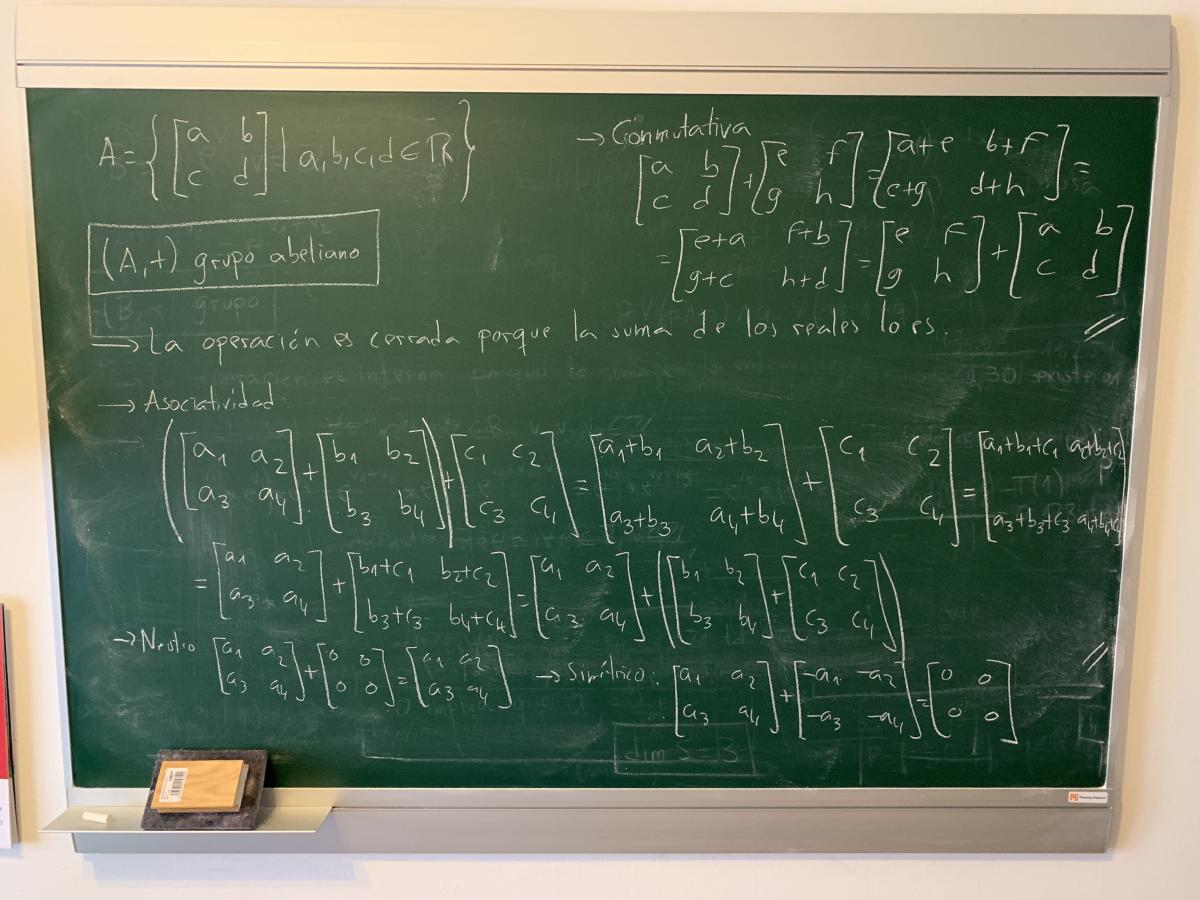 A = { [a b; c d] | a,b,c,d ∈ ℝ }
(A,+) grupo abeliano
→ La operación es cerrada porque la suma de los reales lo es.
→ Conmutativa
[a b; c d] + [e f; g h] = [a+e b+f; c+g d+h] =
= [e+a f+b; g+c h+d] = [e f; g h] + [a b; c d]
→ Asociatividad:
([a₁ a₂; a₃ a₄] + [b₁ b₂; b₃ b₄]) + [c₁ c₂; c₃ c₄] = [a₁+b₁ a₂+b₂; a₃+b₃ a₄+b₄] + [c₁ c₂; c₃ c₄] = [a₁+b₁+c₁ a₂+b₂+c₂; a₃+b₃+c₃ a₄+b₄+c₄]
= [a₁ a₂; a₃ a₄] + [b₁+c₁ b₂+c₂; b₃+c₃ b₄+c₄] = [a₁ a₂; a₃ a₄] + ([b₁ b₂; b₃ b₄] + [c₁ c₂; c₃ c₄])
→ Neutro [a₁ a₂; a₃ a₄] + [0 0; 0 0] = [a₁ a₂; a₃ a₄]
→ Simétrico: [a₁ a₂; a₃ a₄] + [-a₁ -a₂; -a₃ -a₄] = [0 0; 0 0]
dim S = 3